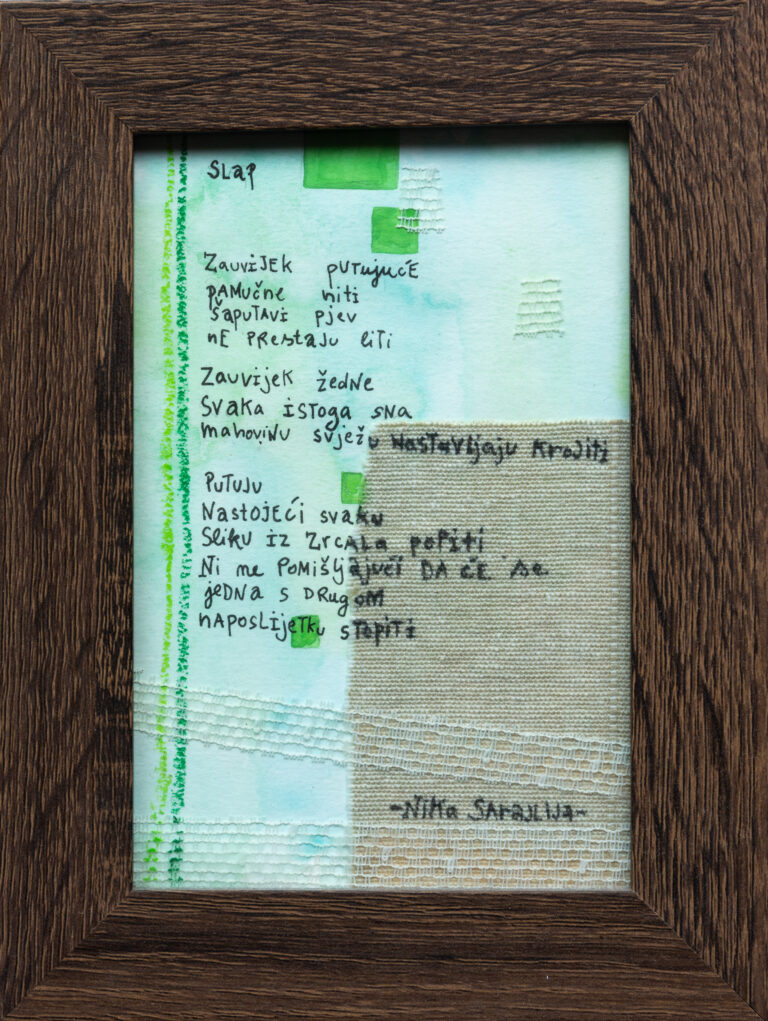 SLAP
ZAUVIJEK PUTUJUĆE
PAMUČNE NITI
ŠAPUTAVI PJEV
NE PRESTAJU LITI
ZAUVIJEK ŽEDNE
SVAKA ISTOGA SNA
MAHOVINU SVJEŽU NASTAVLJAJU KROJITI
PUTUJU
NASTOJEĆI SVAKU
SLIKU IZ ZRCALA POPITI
NI NE POMIŠLJAJUĆI DA ĆE SE
JEDNA S DRUGOM
NAPOSLIJETKU STOPITI
-NIKA SARAJLIJA-